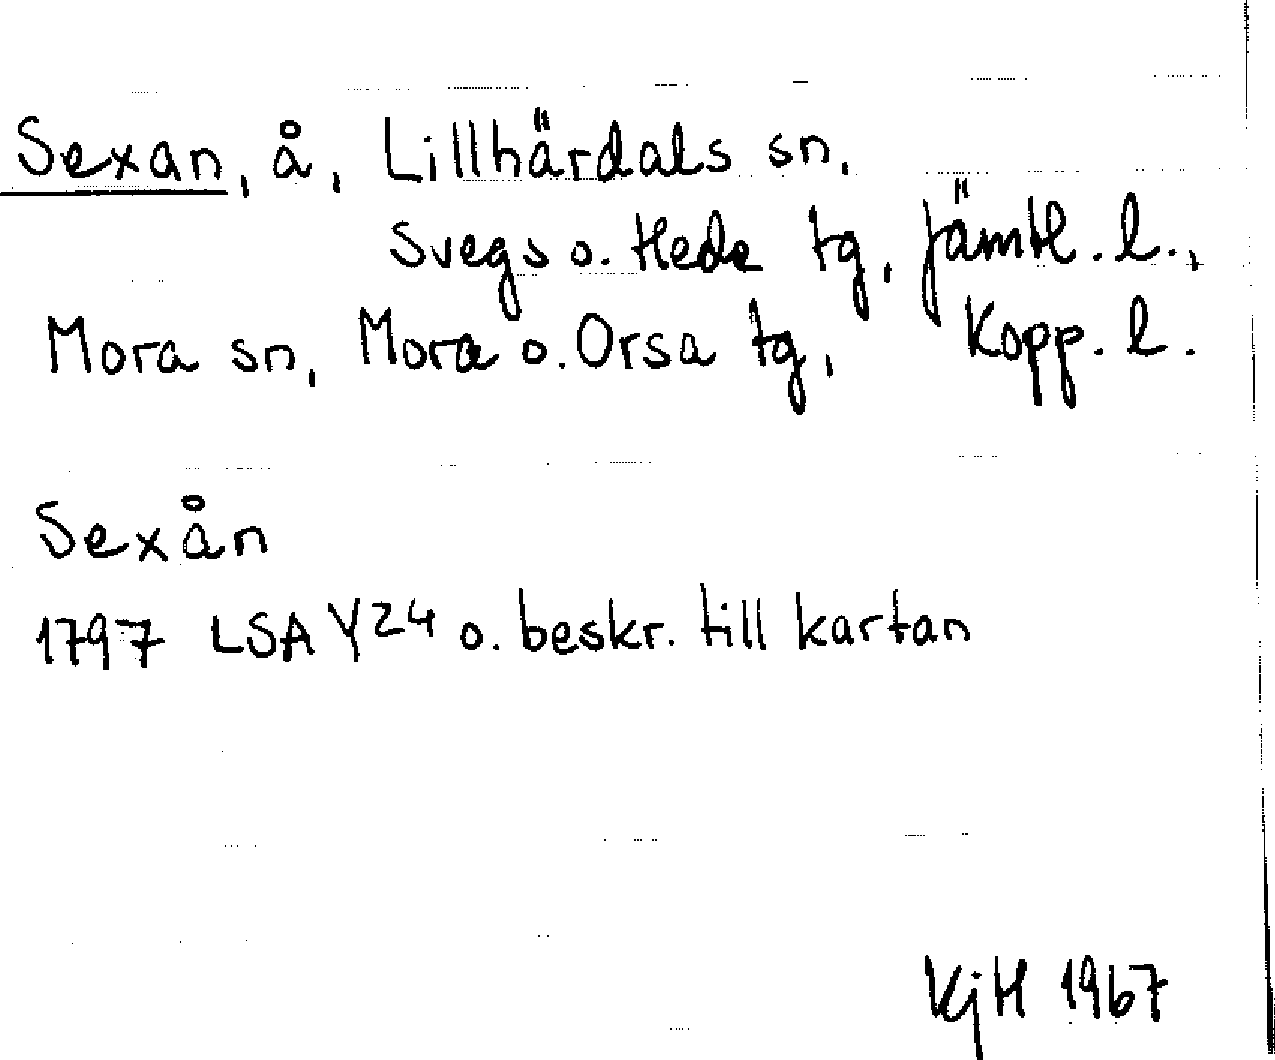 Sexan, å, Lillhärdals sn,
Svegs o. Hede tg, Jämtl. l.,
Mora sn, Mora o. Orsa tg, Kopp. l.
Sexån
1797 LSA Y24 o. beskr. till kartan
KjH 1967